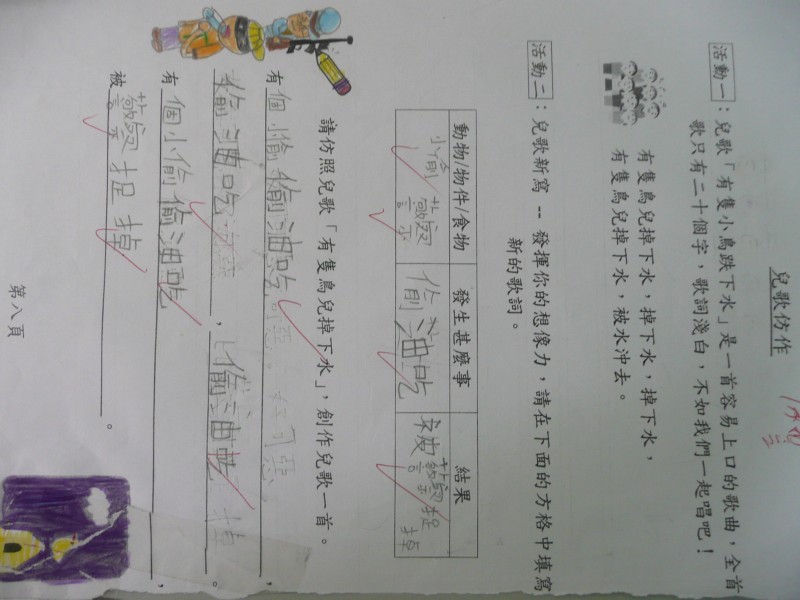 兒歌仿作
活動一：兒歌「有隻小鳥跌下水」是一首容易上口的歌曲，全首
歌只有二十個字，歌詞淺白，不如我們一起唱吧！
有隻鳥兒掉下水，掉下水，掉下水，
有隻鳥兒掉下水，被水沖去。
活動二：兒歌新寫 -- 發揮你的想像力，請在下面的方格中填寫
新的歌詞。
動物/物件/食物 發生甚麼事 結果
小偷/警察 偷油吃 被警察捉掉
請仿照兒歌「有隻鳥兒掉下水」，創作兒歌一首。
有個小偷偷油吃，
偷油吃，偷油吃。
有個小偷偷油吃，
被警察捉掉。
第八頁